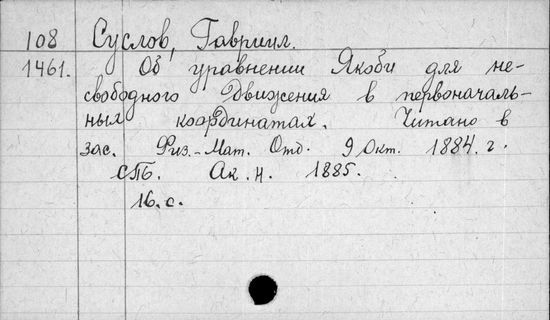 108 Суслов, Гавриил.
1461. Об уравнении Якоби для не-
свободного движения в первоначаль-
ных координатах. Читано в
зас. Физ.-Мат. Отд. 9 Окт. 1884. г.
СПб. Ак. Н. 1885.
16. с.